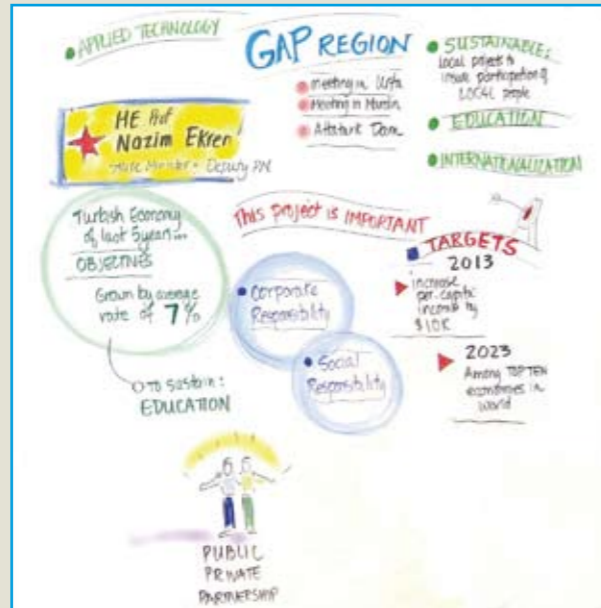 APPLIED TECHNOLOGY
GAP REGION
Meeting in Urfa
Meeting in Mardin
Attaturk Dam
SUSTAINABLE:
Local projects to
insure participation of
LOCAL people
EDUCATION
INTERNATIONALIZATION
HE Prof
Nazim Ekren
State Minister + Deputy PM
Turkish Economy
of last 5 years...
OBJECTIVES
Grown by average
rate of 7%
TO sustain:
EDUCATION
This project is IMPORTANT
Corporate
Responsibility
Social
Responsibility
TARGETS
2013
increase
per-capita
income by
$10K
2023
Among TOP TEN
economies in
world
PUBLIC
PRIVATE
PARTNERSHIP